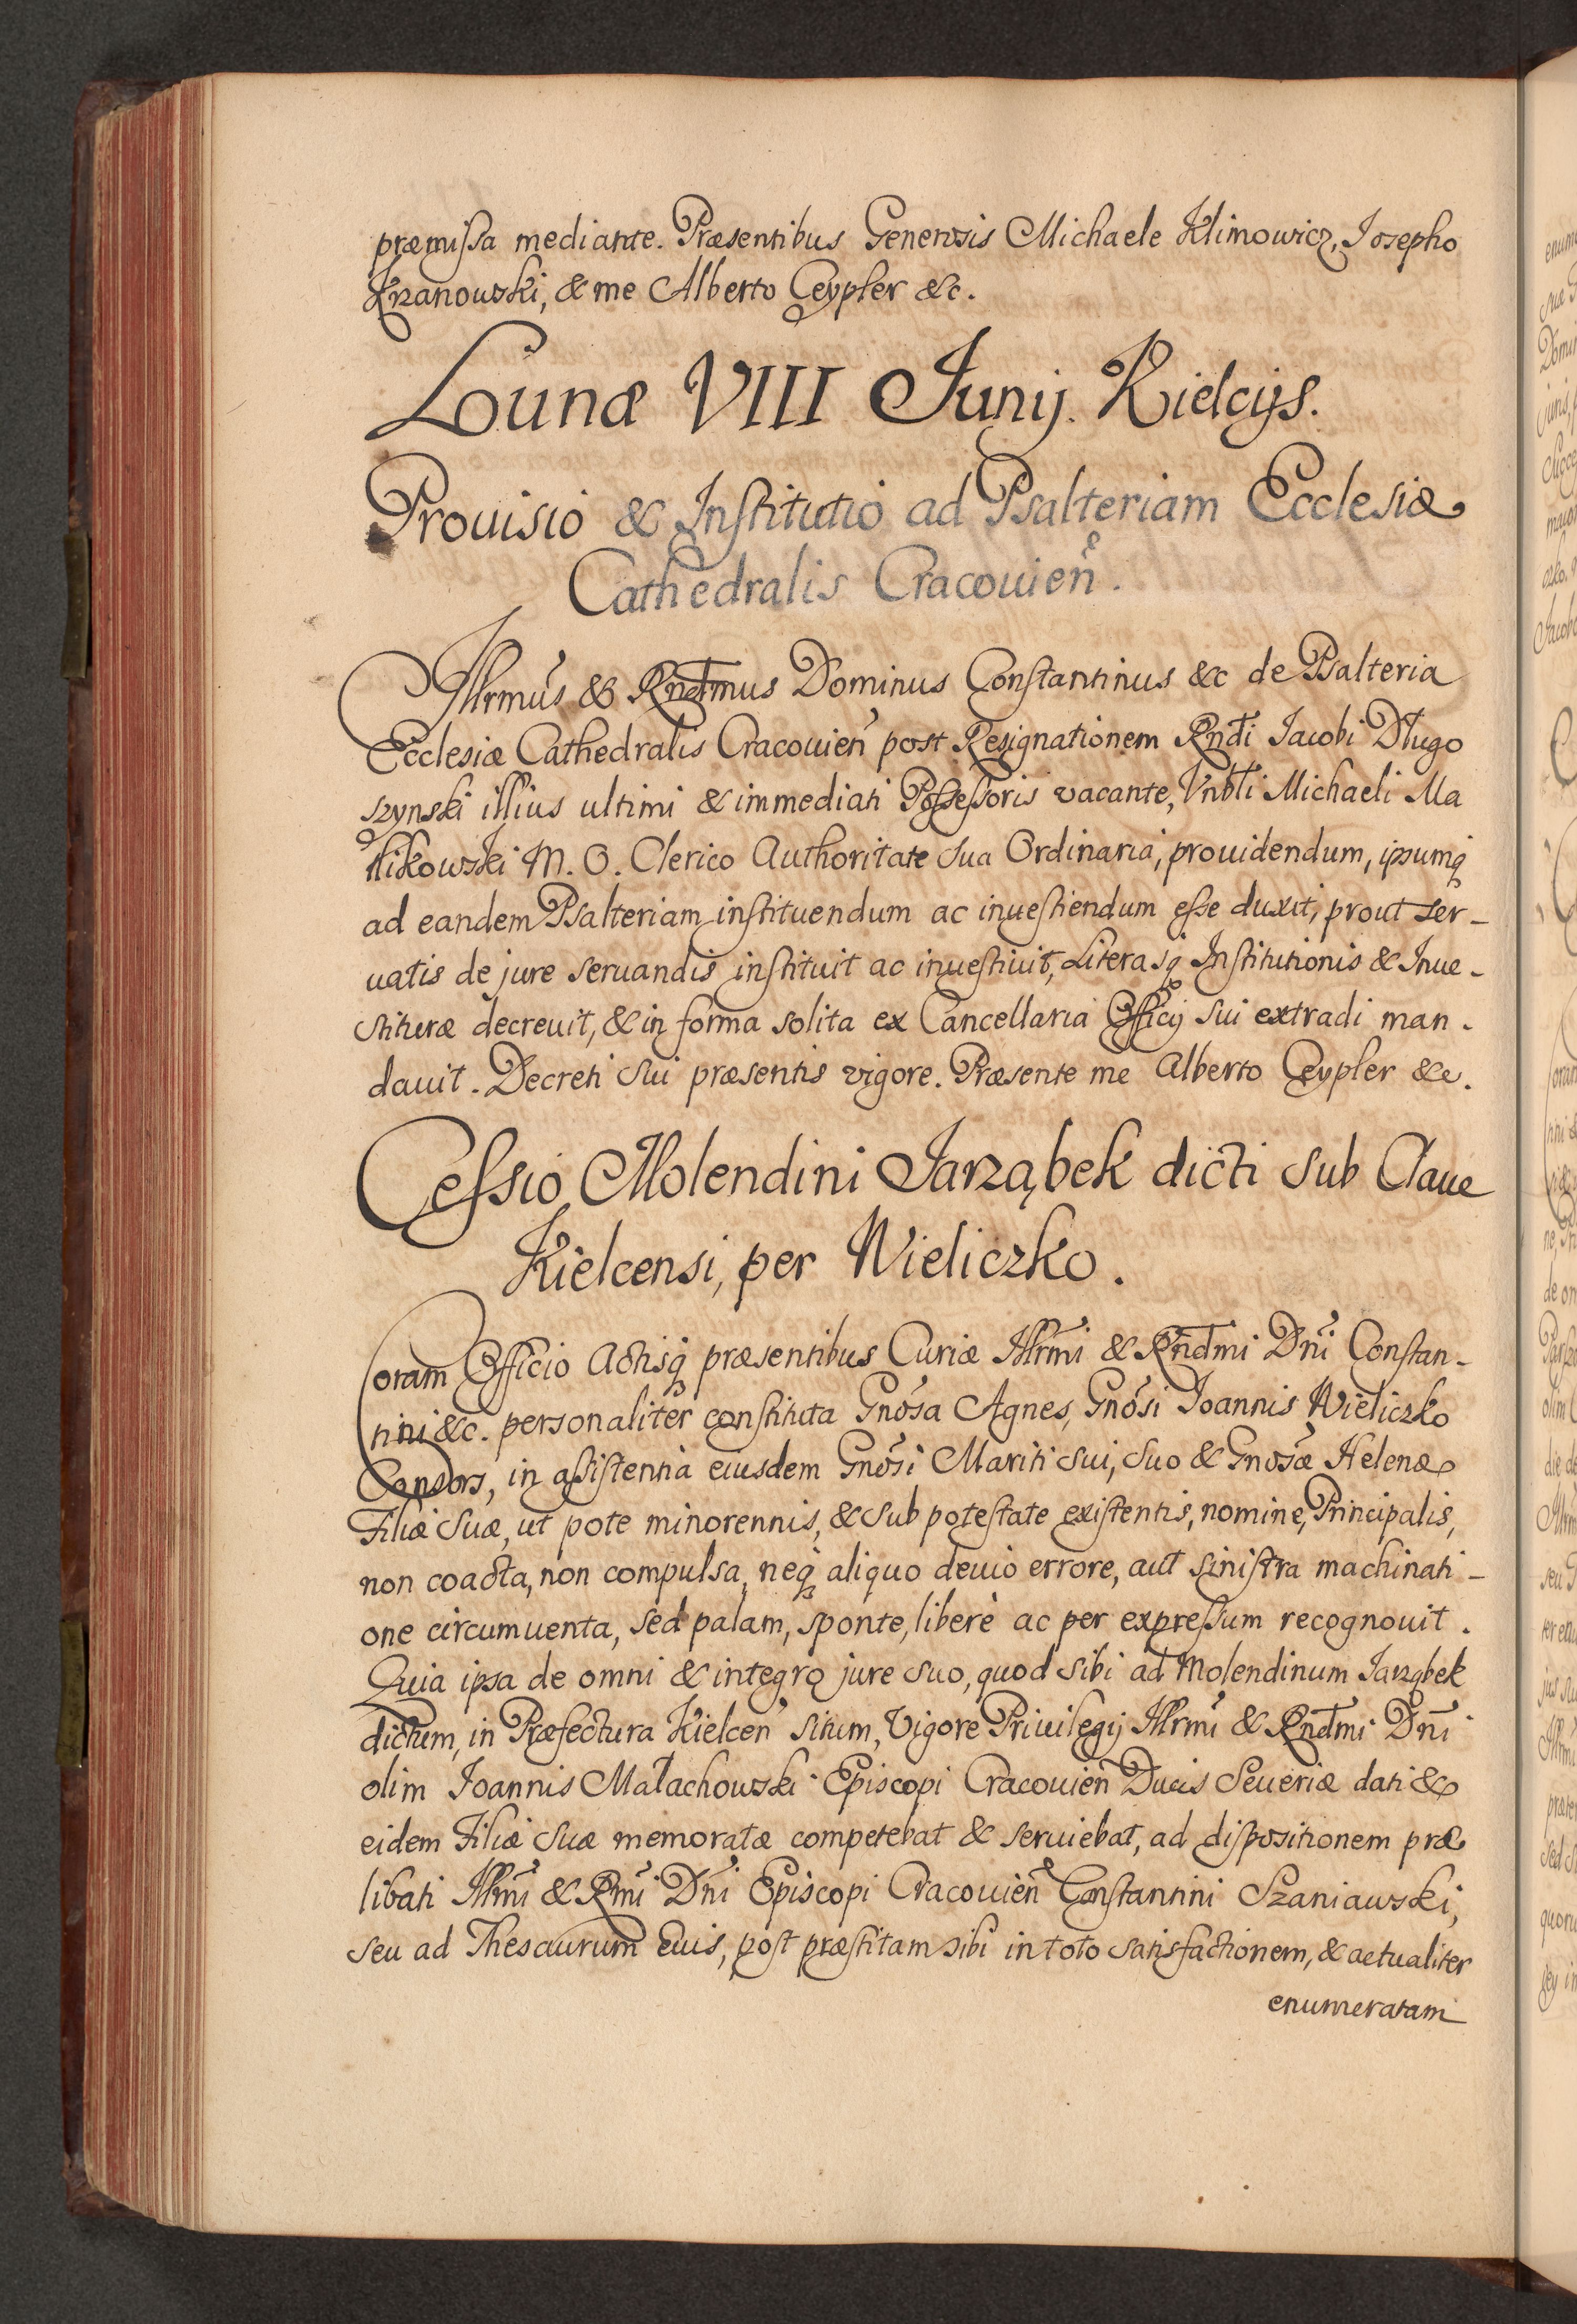 præmissa mediante. Præsentibus Generosis Michaele Klimowicz, Josepho
Krzanowski, & me Alberto Ceypler &c.
Lunæ VIII Junij. Kielcijs.
Prouisio & Institutio ad Psalteriam Ecclesiæ
Cathedralis Cracouien̄.
Illrmus & Rndmus Dominus Constantinus &c de Psalteria
Ecclesiæ Cathedralis Cracouien̄ post Resignationem Rndi Iacobi Długo
szynski illius ultimi & immediati Possessoris vacante, Vnbli Michaeli Ma
słikowski M. O. Clerico Authoritate sua Ordinaria, prouidendum, ipsumq
ad eandem Psalteriam instituendum ac inuestiendum esse duxit, prout ser-
uatis de jure seruandis instituit ac inuestiuit, Literasq Institutionis & Inue-
stituræ decreuit, & in forma solita ex Cancellaria Officij sui extradi man-
dauit. Decreti sui præsentis vigore. Præsente me Alberto Ceypler &c.
Cessio Molendini Jarząbek dicti sub Claue
Kielcensi, per Wieliczko.
Coram Officio Actisq præsentibus Curiæ Illrmi & Rndmi Dni Constan-
tini &c. personaliter constituta Gnosa Agnes, Gnosi Joannis Wieliczko
Consors, in assistentia eiusdem Gnosi Mariti sui, suo & Gnosæ Helenæ
Filiæ suæ, ut pote minorennis, & sub potestate existentis, nomine, Principalis,
non coacta, non compulsa, neq aliquo deuio errore, aut sinistra machinati-
one circumuenta, sed palam, sponte, liberè ac per expressum recognouit.
Quia ipsa de omni & integro jure suo, quod sibi ad Molendinum Jarząbek
dictum, in Præfectura Kielcen̄ situm, Vigore Priuilegij Illrmi & Rndmi Dni
olim Joannis Małachowski Episcopi Cracouien̄ Ducis Seueriæ dati &
eidem Filiæ suæ memoratæ competebat & seruiebat, ad dispositionem præ
libati Illmi & Rmi Dni Episcopi Cracouien̄ Constantini Szaniawski,
seu ad Thesaurum Eius, post præstitam sibi in toto satisfactionem, & actualiter
enumeratam